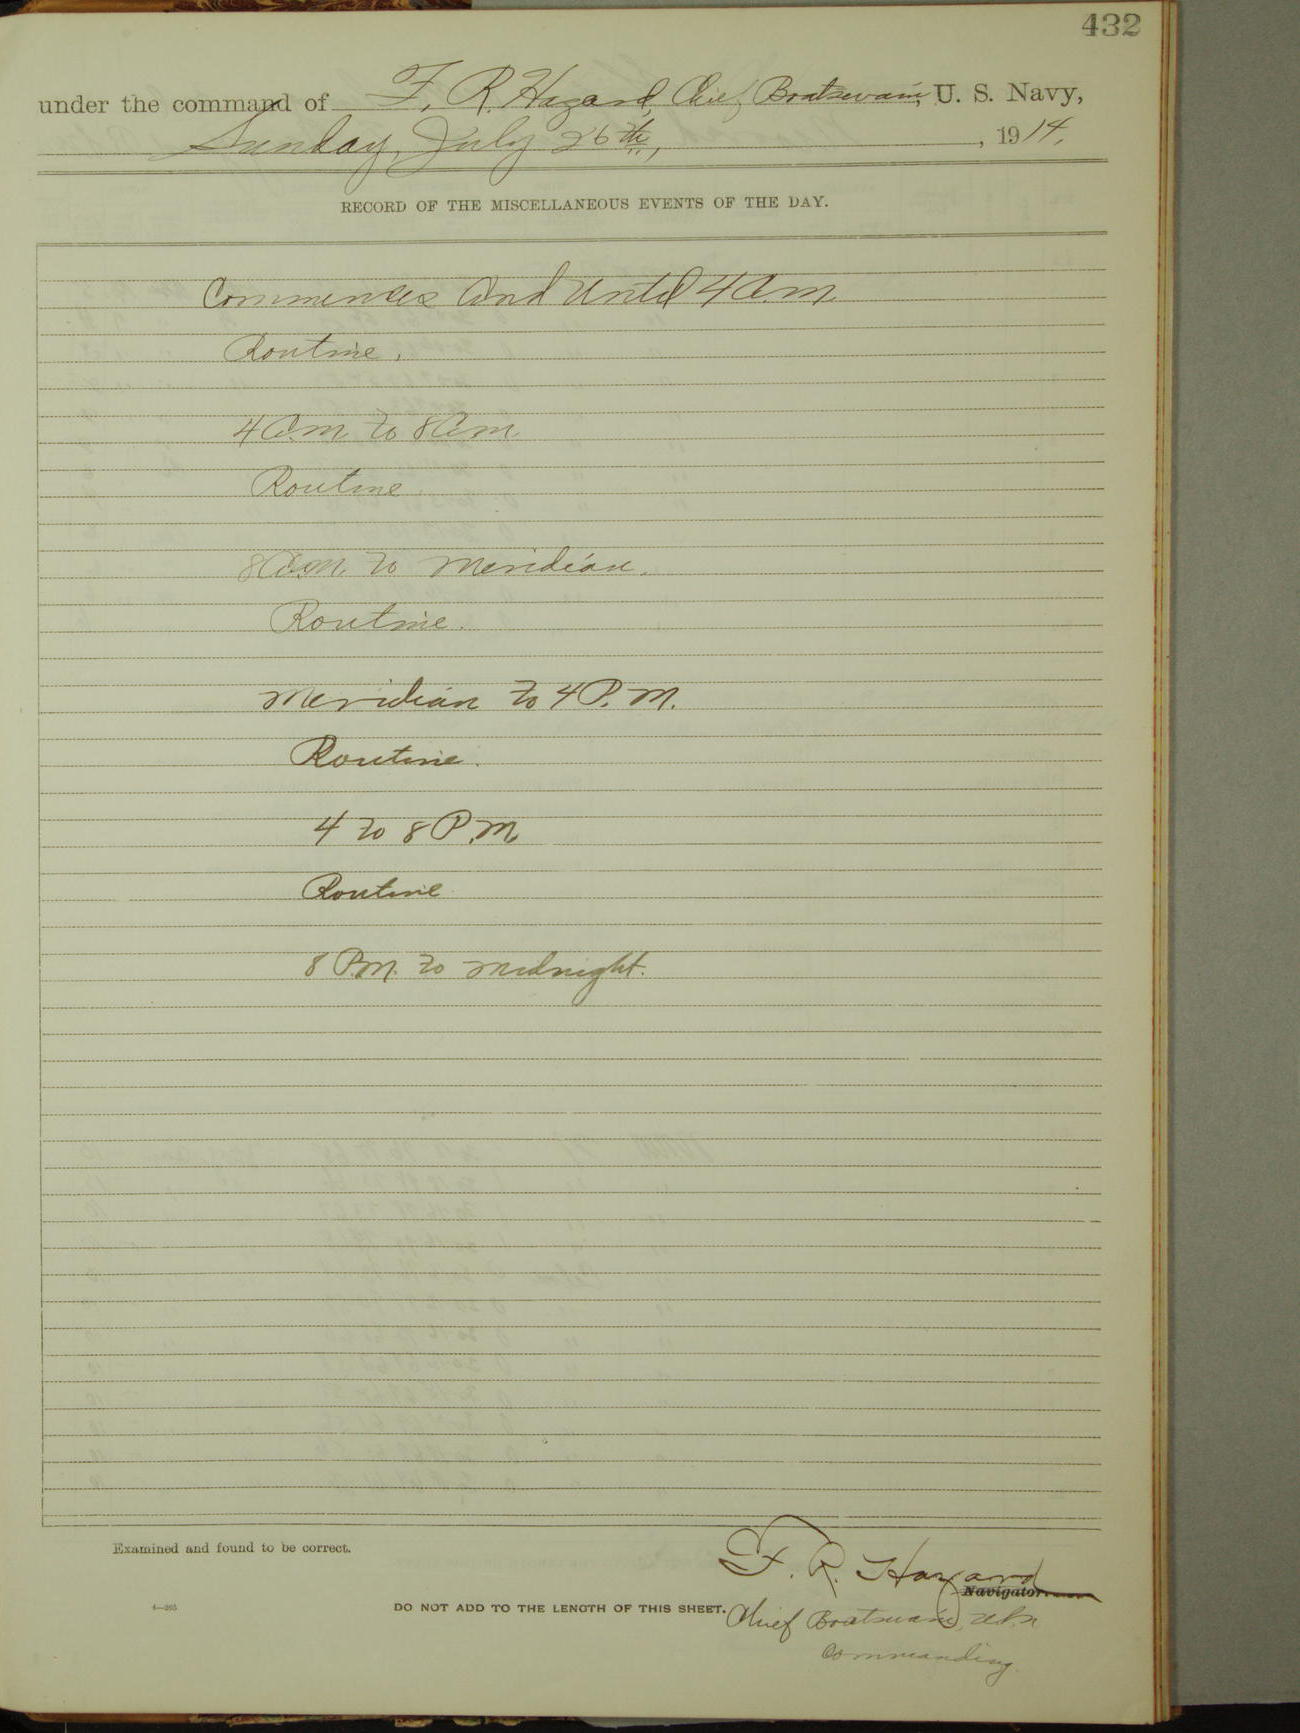 432
under the command of F. R. Hazard, Chief Boatswain, U. S. Navy,
Sunday, July 26th, , 1914.
RECORD OF THE MISCELLANEOUS EVENTS OF THE DAY.
Commences And Until 4 A.m.
Routine.
4 A.m. to 8 A.m.
Routine.
8 A.m. to Meridian.
Routine.
Meridian to 4 P.M.
Routine.
4 to 8 P.M.
Routine
8 P.M. to Midnight.
Examined and found to be correct.
F. R. Hazard
Navigator.
4—265
DO NOT ADD TO THE LENGTH OF THIS SHEET.
Chief Boatswain, U.S.N
Commanding.